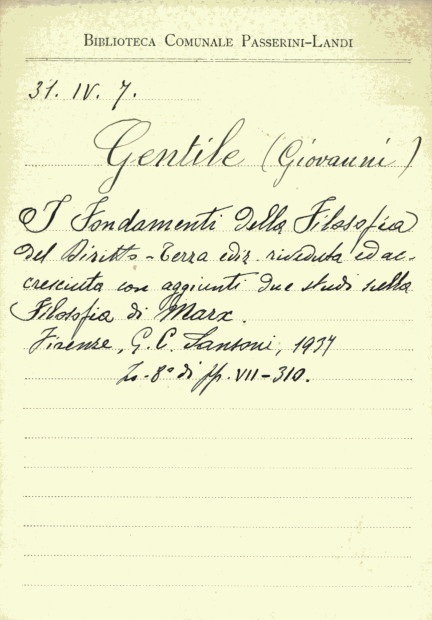 BIBLIOTECA COMUNALE PASSERINI-LANDI
31. IV. 7.
Gentile (Giovanni)
I Fondamenti della Filosofia
del Diritto - Terza ediz. riveduta ed ac-
cresciuta con aggiunti due studi sulla
Filosofia di Marx.
Firenze, G. C. Sansoni, 1937
In-8° di pp. VII-310.